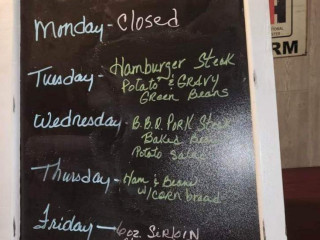 Monday - Closed
Tuesday - Hamburger Steak
Potato & GRAVY
Green Beans
Wednesday - B.B.Q. PORK Steak
Baked Beans
Potato Salad
Thursday - Ham & Beans
w/corn bread
Friday - 6oz SIRLOIN
RM